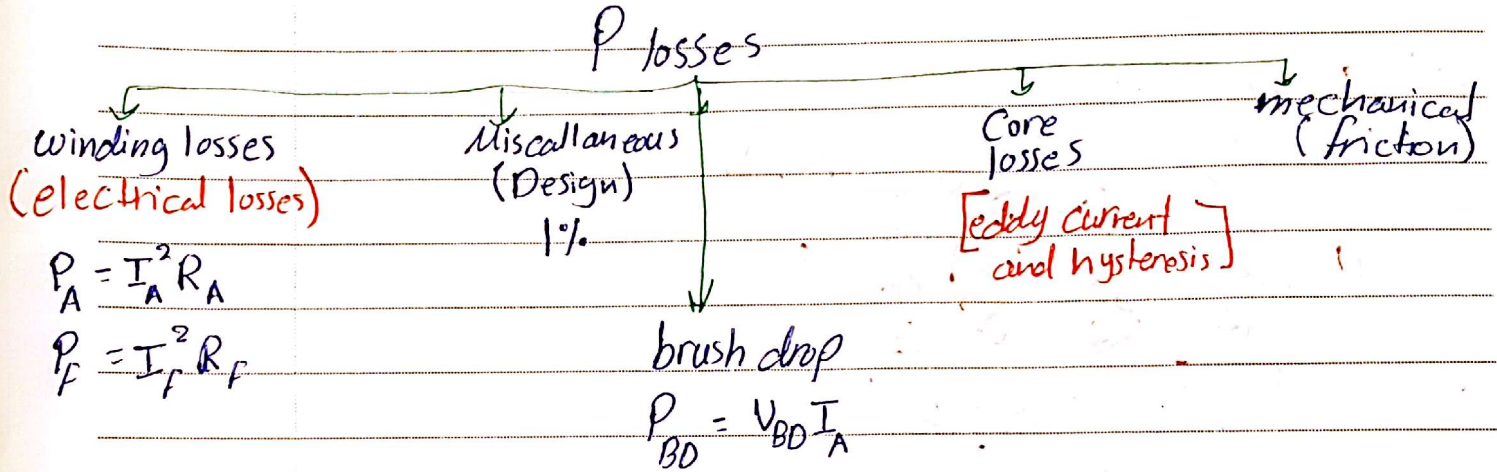 P losses
winding losses
(electrical losses)
P_A = I_A^2 R_A
P_F = I_F^2 R_F
Miscallaneous
(Design)
1%
brush drop
P_BD = V_BD I_A
Core
losses
[eddy current
and hysteresis]
mechanical
(friction)